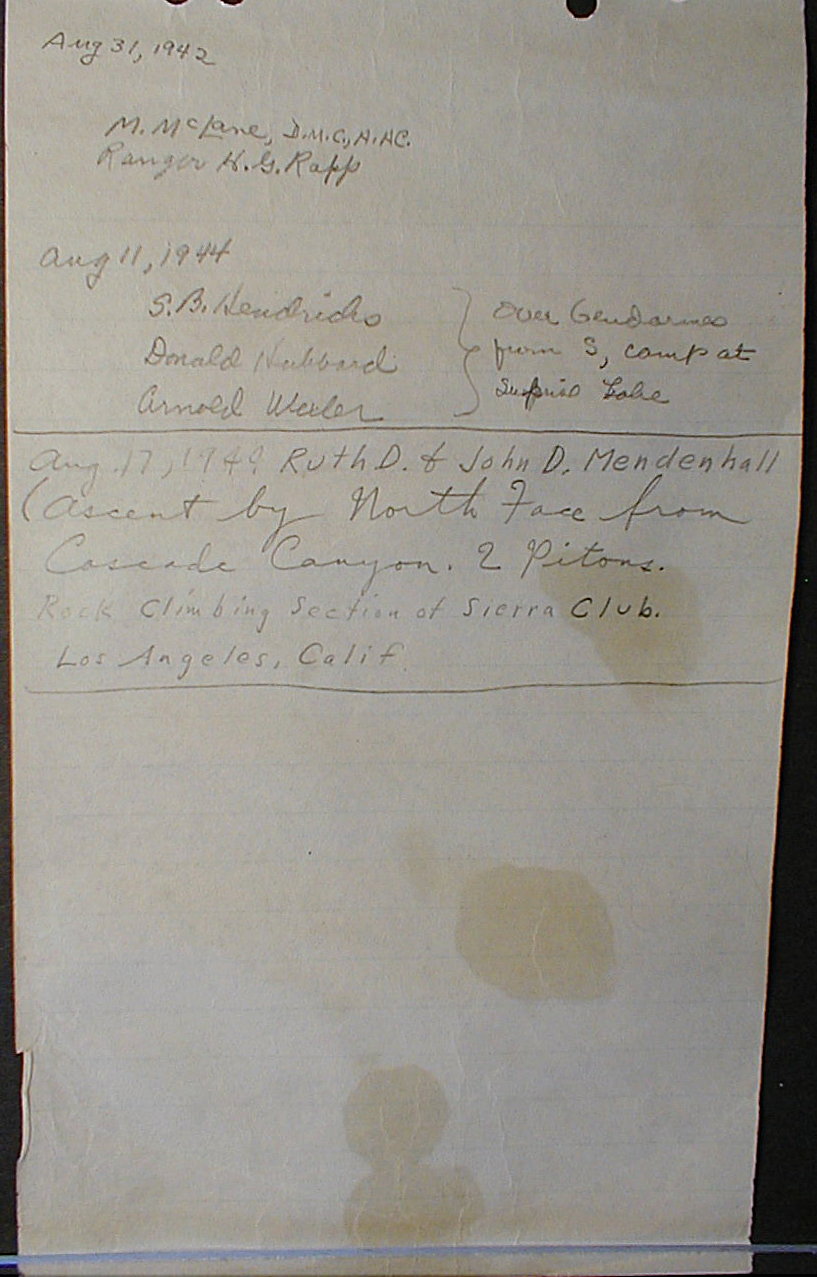 Aug 31, 1942
M. McLane, D.M.C., A.AC.
Ranger H. G. Rapp
Aug 11, 1944
S. B. Hendricks
Donald Hubbard
Arnold Wexler
Over Gendarmes
from S, camp at
Surprise Lake
Aug. 17, 1949 Ruth D. & John D. Mendenhall
(Ascent by North Face from
Cascade Canyon. 2 Pitons.
Rock Climbing Section of Sierra Club.
Los Angeles, Calif.